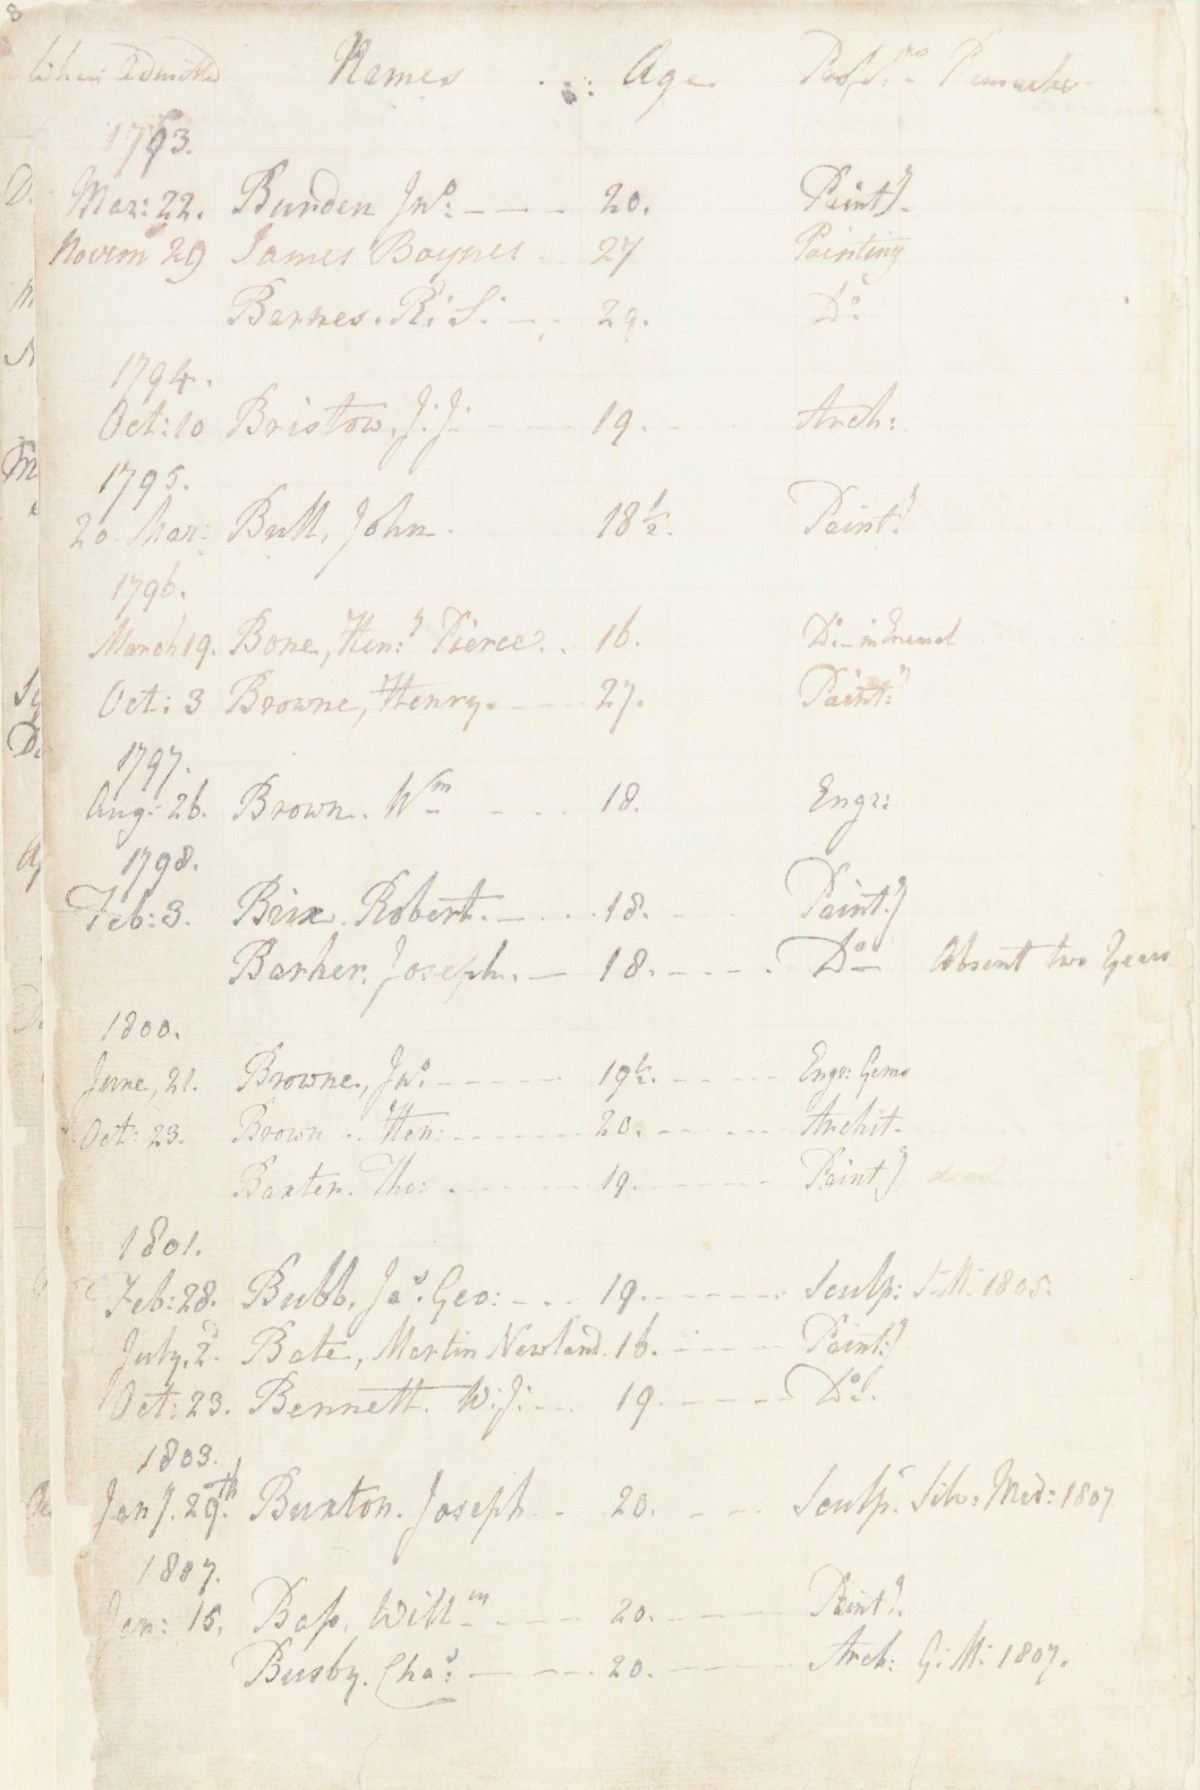 8
When Admitted Names Age Profss.ns Remarks
1793.
Mar: 22. Burden Jn.o 20. Paint.g
Novem 29 James Baynes 27 Painting
Barnes. R: S: 29. D.o
1794.
Oct: 10 Bristow, J: J: 19. Arch:
1795.
20 Mar: Bull, John. 18 1/2. Paint.g
1796.
March 19. Bone, Hen:y Pierce. 16. D.o in Enamel
Oct: 3 Browne, Henry. 27. Paint:g
1797.
Aug: 26. Brown. Wm 18. Engr:
1798.
Feb: 3. Bix. Robert. 18. Paint.g
Barker, Joseph. 18. Do Absent two Years
1800.
June, 21. Browne, Jn.o 19 1/2. Engr: Gems
Oct: 23. Brown Hen: 20. Archit.
Baxter. Tho: 19. Paint.g dead
1801.
Feb: 28. Bubb, Ja.s Geo: 19. Sculp: S: M: 1805.
July, 2d Bate, Martin Newland. 16. Paint:g
Oct: 23. Bennett. W: J: 19. D.o
1803.
Jan.y 29th Buxton. Joseph 20. Sculp.r Silv: Med: 1807
1807.
Jan: 15, Baſs, Willm 20. Paint.g
Busby. Cha.s 20. Arch: G: M: 1807.